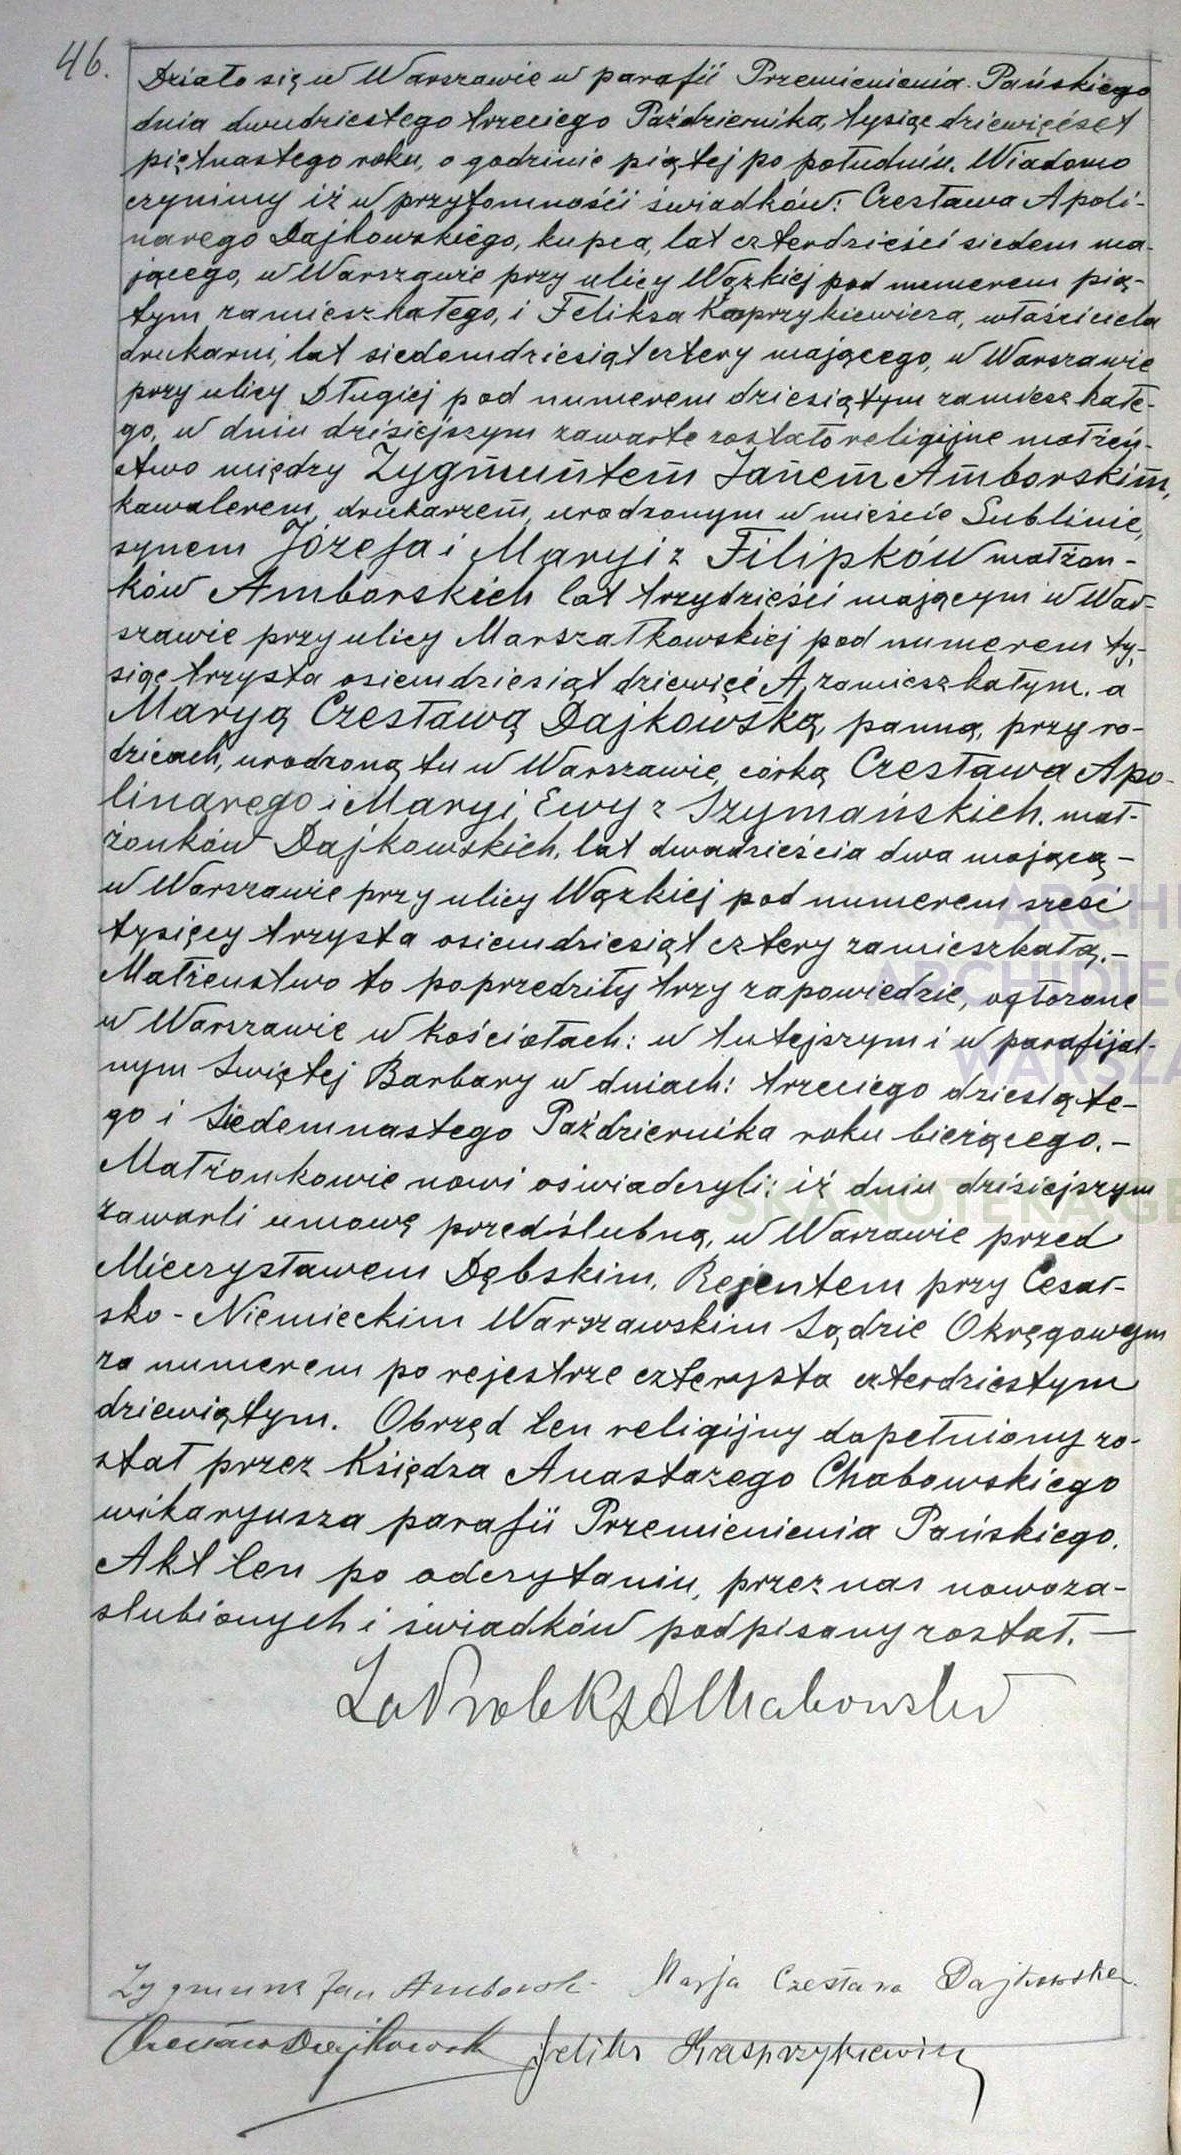 46.
Działo się w Warszawie w parafii Przemienienia Pańskiego
dnia dwudziestego trzeciego Października, tysiąc dziewięćset
piętnastego roku, o godzinie piątej po południu. Wiadomo
czynimy iż w przytomności świadków: Czesława Apoli-
narego Dajkowskiego, kupca, lat czterdzieści siedem ma-
jącego, w Warszawie przy ulicy Wązkiej pod numerem pią-
tym zamieszkałego, i Feliksa Kasprzykiewicza, właściciela
drukarni, lat siedemdziesiąt cztery mającego, w Warszawie
przy ulicy Długiej pod numerem dziesiątym zamieszkałe-
go, w dniu dzisiejszym zawarte zostało religijne małżeń-
stwo między Zygmuntem Janem Amborskim,
kawalerem, drukarzem, urodzonym w mieście Lublinie,
synem Józefa i Maryi z Filipków małżon-
ków Amborskich lat trzydzieści mającym w War-
szawie przy ulicy Marszałkowskiej pod numerem ty-
siąc trzysta osiemdziesiąt dziewięć A, zamieszkałym. a
Maryą Czesławą Dajkowską, panną, przy ro-
dzicach, urodzoną tu w Warszawie, córką Czesława Apo-
linarego i Maryi Ewy z Szymańskich. mał-
żonków Dajkowskich, lat dwadzieścia dwa mającą -
w Warszawie przy ulicy Wązkiej pod numerem sześć
tysięcy trzysta osiemdziesiąt cztery zamieszkałą. -
Małżeństwo to poprzedziły trzy zapowiedzie, ogłoszone
w Warszawie w kościołach: w tutejszym i w parafijal-
nym Świętej Barbary w dniach: trzeciego dziesiąte-
go i Siedemnastego Października roku bieżącego. -
Małżonkowie nowi oświadczyli: iż dniu dzisiejszym
zawarli umowę przedślubną, w Warszawie przed
Mieczysławem Dębskim, Rejentem przy Cesar-
sko - Niemieckim Warszawskim Sądzie Okręgowym
za numerem po rejestrze czterysta czterdziestym
dziewiątym. Obrzęd ten religijny dopełniony zo-
stał przez Księdza Anastazego Chabowskiego
wikaryusza parafii Przemienienia Pańskiego.
Akt ten po odczytaniu, przez nas nowoza-
ślubionych i świadków podpisany został. -
Za Prob Ks A Chabowski
Zygmunt Jan Amborski Marja Czesława Dajkowska.
Czesław Dajkowski Feliks Kasprzykiewicz
ARCHI
ARCHIDIEC
WARSZA
SKANOTEKA GE